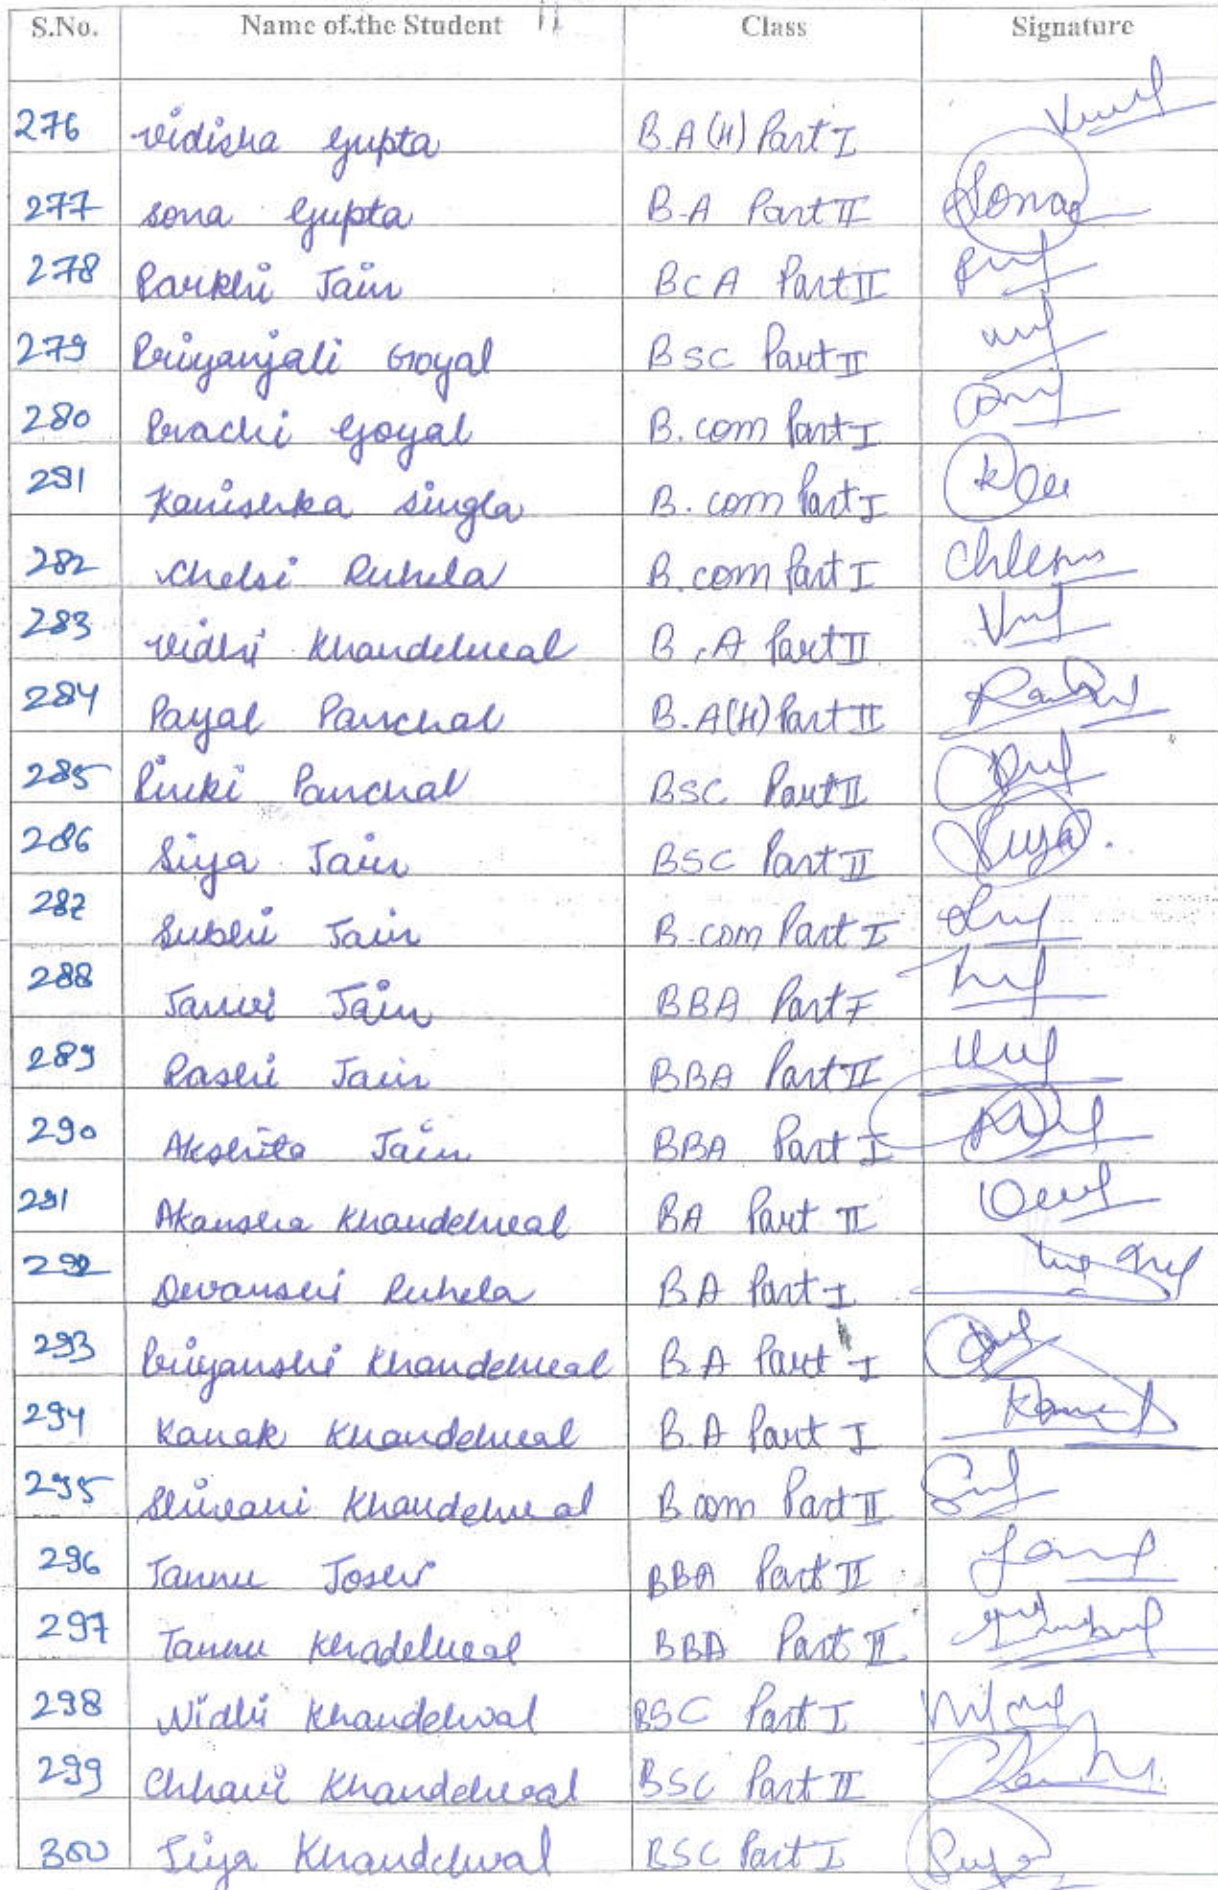 S.No. Name of the Student Class Signature
276 Vidisha Gupta B.A (H) Part I
277 Sona Gupta B.A Part II Sona
278 Parkhi Jain BCA Part II
279 Priyanjali Goyal BSC Part II
280 Prachi Goyal B.com Part I
281 Kanishka Singla B.com Part I
282 Chelsi Ruhela B.com Part I
283 Vidhi Khandelwal B.A Part II
284 Payal Panchal B.A(H) Part II
285 Pinki Panchal BSC Part II
286 Siya Jain BSC Part II
287 Subhi Jain B.com Part I
288 Tanvi Jain BBA Part I
289 Pashi Jain BBA Part II
290 Akshita Jain BBA Part I
291 Akansha Khandelwal BA Part II
292 Devanshi Ruhela B.A Part I
293 Priyanshi Khandelwal B.A Part I
294 Kanak Khandelwal B.A Part I
295 Shivani Khandelwal B com Part II
296 Tannu Joshi BBA Part II
297 Tannu Khadelwal BBA Part II
298 Nidhi Khandelwal BSC Part I
299 Chhavi Khandelwal BSC Part II
300 Siya Khandelwal BSC Part I